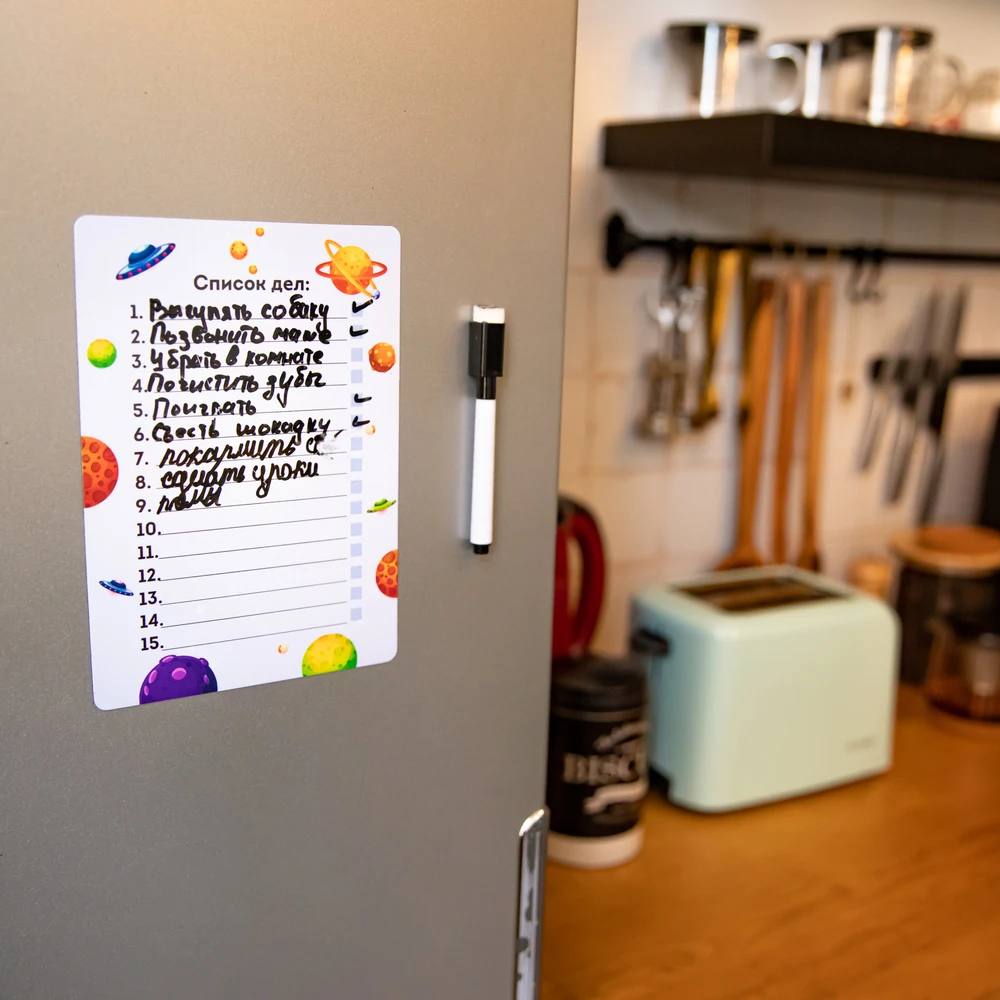 Список дел:
1. Выгулять собаку
2. Позвонить маме
3. Убрать в комнате
4. Почистить зубы
5. Поиграть
6. Съесть шокадку
7. покармить с
8. сделать уроки
9.
10.
11.
12.
13.
14.
15.
BISC